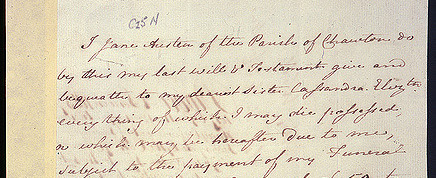 C25 H
I Jane Austen of the Parish of Chawton do
by this my last Will & Testament give and
bequeath to my dearest Sister Cassandra Elizth
every thing of which I may die possessed,
or which may be hereafter due to me,
subject to the payment of my Funeral